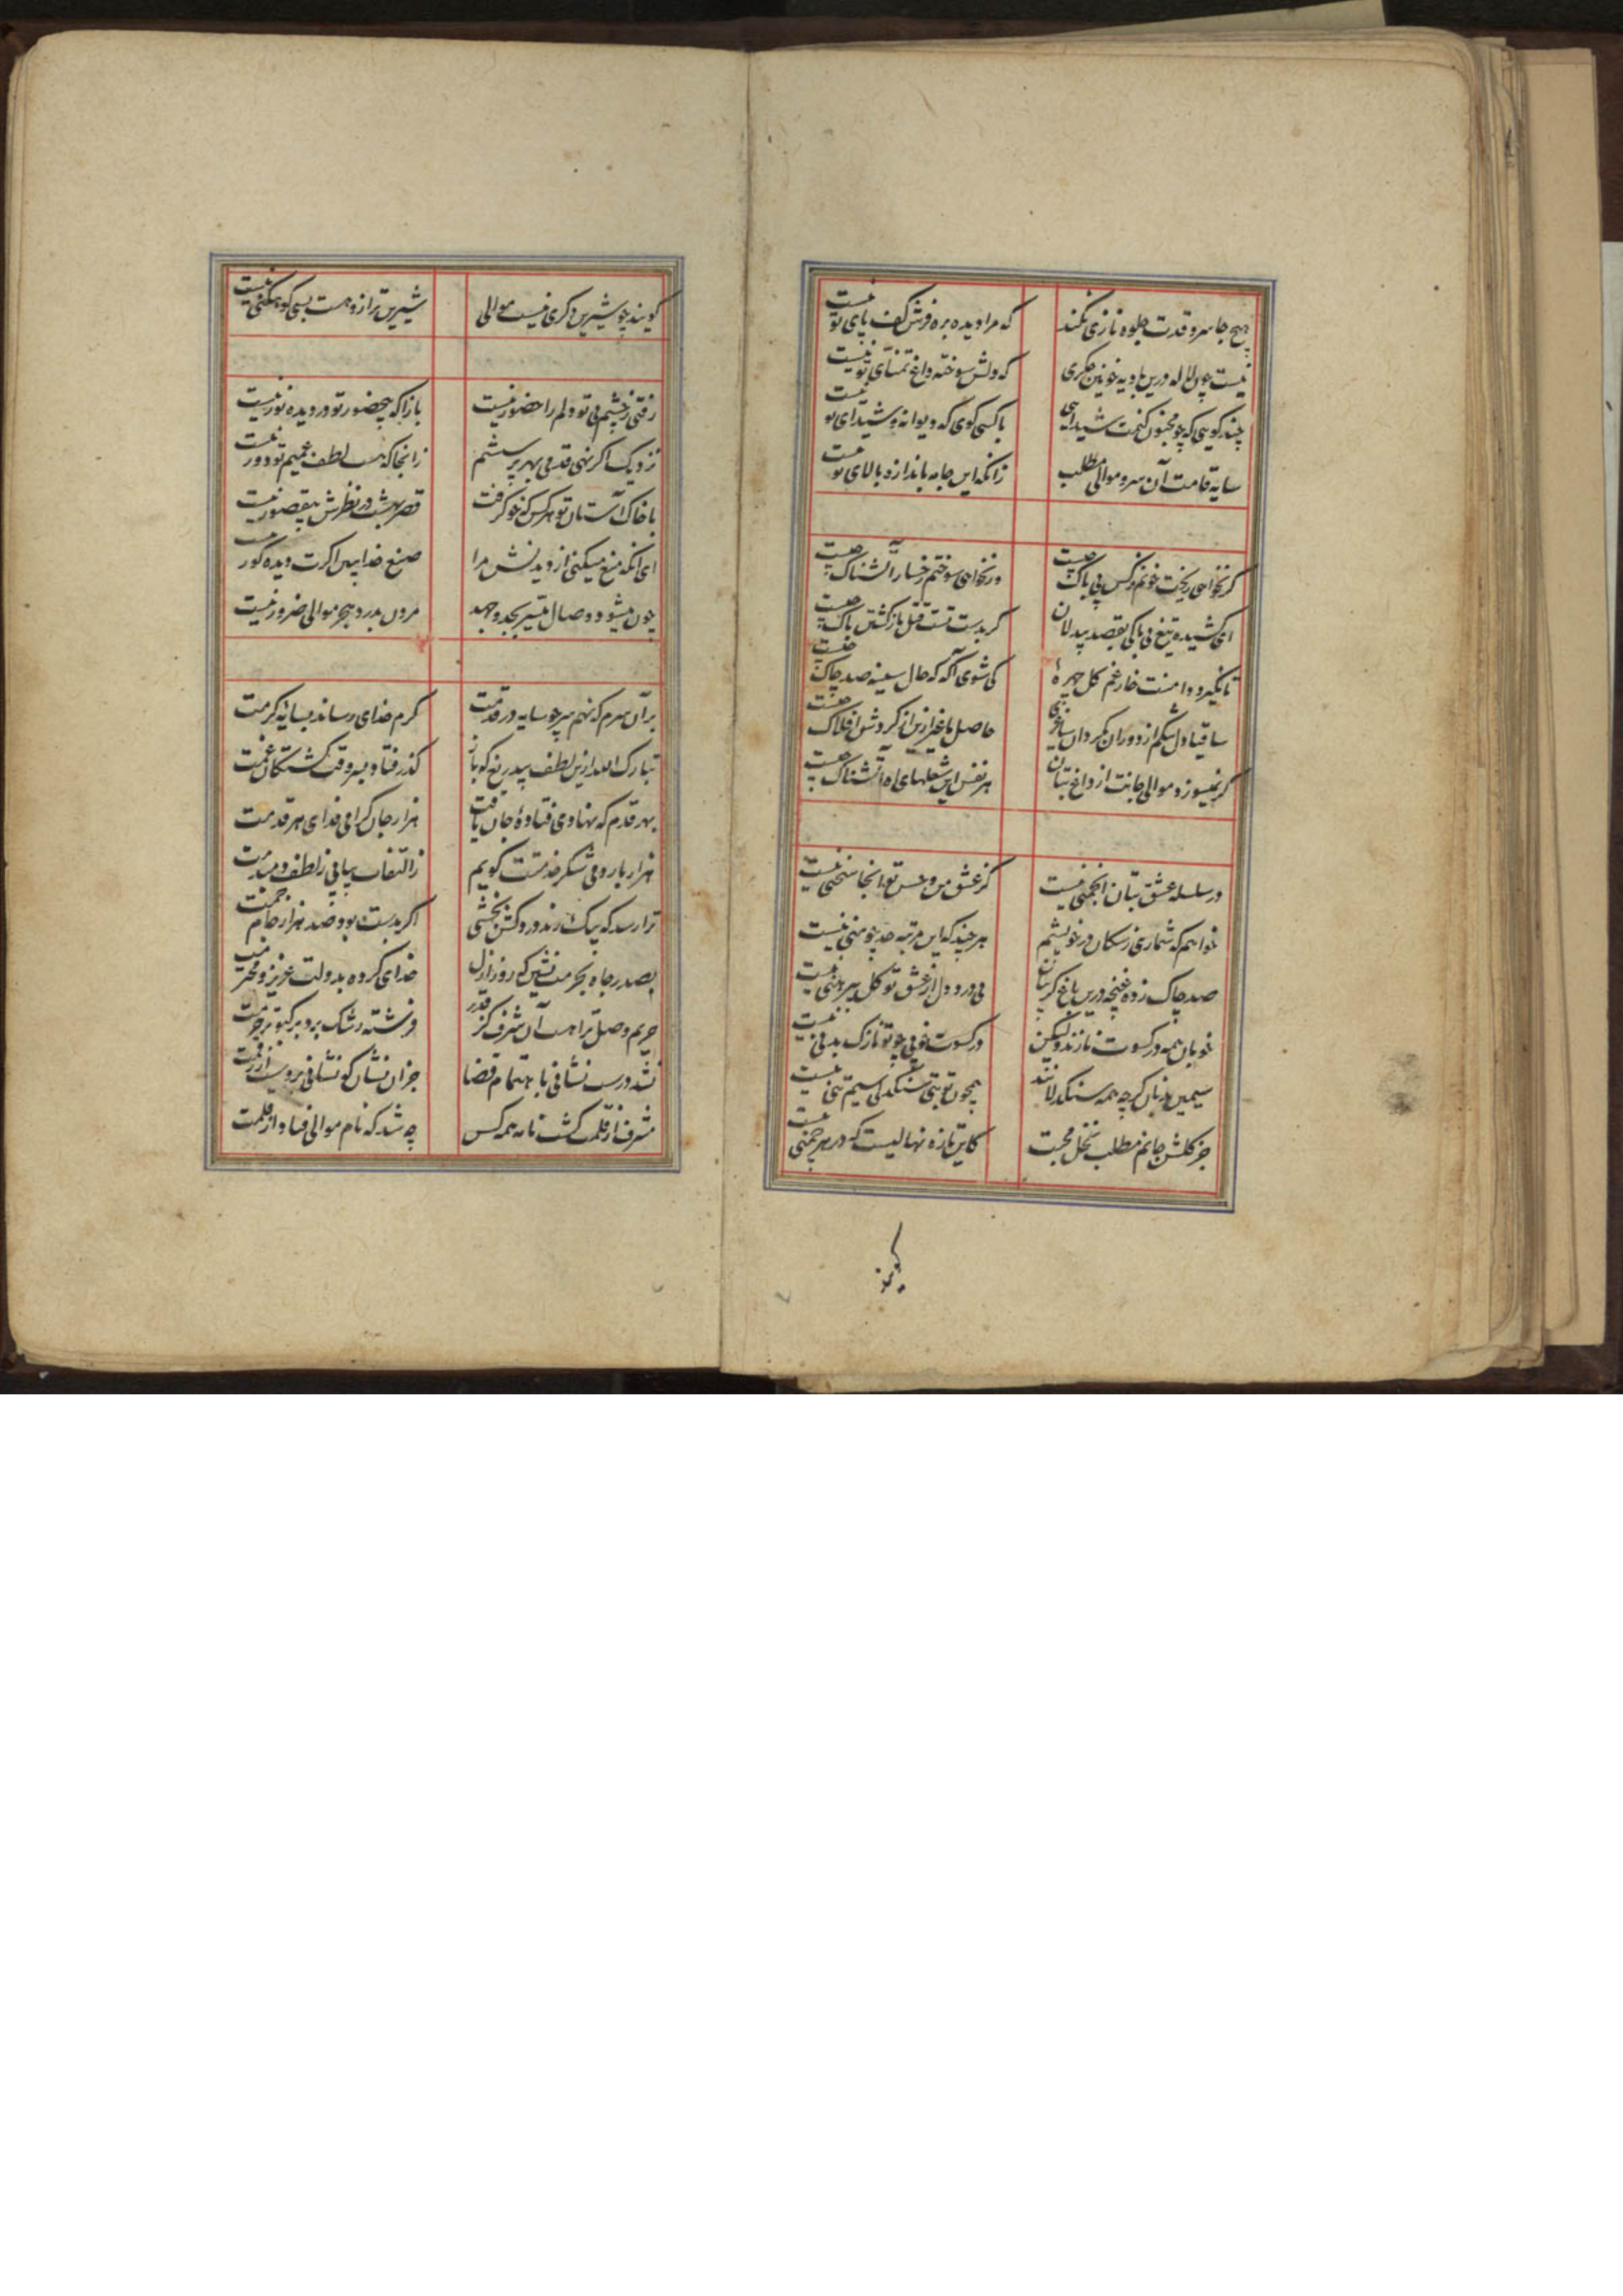 هیچ جا سرو قدت جلوه نازی نکند که مرا دیده بره فرش کف پای تو نیست
نیست چون لاله درین بادیه خونین جگری که دلش سوخته داغ تمنای تو نیست
چند کویی که چو مجنون کنمت شیدایی با کسی کوی که دیوانه و شیدای تو نیست
سایه قامت آن سرو موالی مطلب زانکه این جامه باندازه بالای تو نیست
کر نخواهی ریخت خونم نرکس بی باک چیست ور نخواهی سوختم رخسار آتشناک چیست
ای کشیده تیغ بی باکی بقصد بیدلان کر بدست تست قتل باز کشتن باک چیست
تا نکیرد دامنت خار غم کل چهرهٔ کی شوی آکه که حال سینه صد چاک چیست
ساقیا دل تنکم از دوران بکردان ساغری حاصل ما غیر ازین از کردش افلاک چیست
کر نمیسوزد موالی جانت از داغ بتان هر نفس این شعلهای آه آتشناک چیست
در سلسله عشق بتان انجمنی نیست کز عشق من و حسن تو انجا سخنی نیست
خواهم که شماری ز سکان در خویشم هر چند که این مرتبه حد چو منی نیست
صد چاک زده غنچه درین باغ کریبان بی درد دل از عشق تو کل پیرهنی نیست
خوبان همه در کسوت نازند ولیکن در کسوت خوبی چو تو نازک بدنی نیست
سیمین بدنان کرچه همه سنکدلانند همچون تو بتی سنکدلی سیم تنی نیست
جز کلشن جانم مطلب نخل محبت کاین تازه نهالیست که در هر چمنی نیست
کویند
کویند چو شیرین دکری نیست موالی شیرین تر ازو هست بسی کوهکنی نیست
رفتی ز چشم بی تو دلم را حضور نیست بازا که بی حضور تو در دیده نور نیست
نزدیک اکر نهی قدمی بهر پرسشم زانجا که هست لطف عمیم تو دور نیست
با خاک آستان تو هر کس که خو کرفت قصر بهشت در نظرش بی قصور نیست
ای انکه منع میکنی از دیدنش مرا صنع خدا ببین اکرت دیده کور نیست
چون میشود وصال میسر بجد و جهد مردن بدرد هجر موالی ضرور نیست
بر آن سرم که نهم سر چو سایه در قدمت کرم خدای رساند بسایهٔ کرمت
تبارک الله ازین لطف بیدریغ که باز کذر فتاد بسر وقت کشتکان غمت
بهر قدم که نهادی فتادهٔ جان یافت هزار جان کرامی فدای هر قدمت
هزار بار دمی شکر خدمتت کویم ز التفات پیاپی ز لطف دمبدمت
ترا رسد که بیک رند دردکش بخشی اکر بدست بود صد هزار جام جمت
بصدر جاه بحرمت نشین که روز ازل خدای کرده بدولت عزیز و محترمت
حریم وصل ترا هست آن شرف کز قدر فرشته رشک برد بر کبوتر حرمت
نشد درست نشانی باهتمام قضا جز ان نشان که نشانی بروست از رقمت
مشرف از قلمت کشت نامه همه کس چه شد که نام موالی فتاد از قلمت